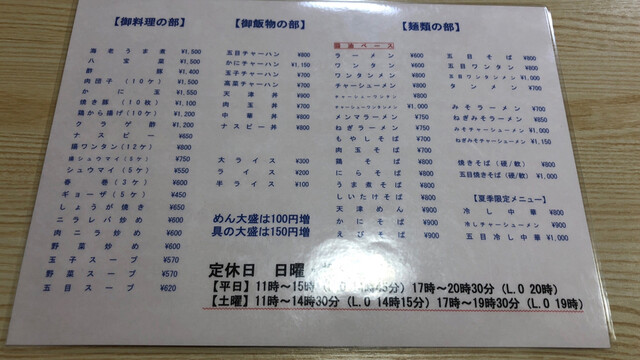 【御料理の部】
海老うま煮 ¥1,500
八宝菜 ¥1,500
酢豚 ¥1,400
肉団子(10ケ) ¥1,500
かに玉 ¥1,550
焼き豚(10枚) ¥1,100
鶏から揚げ(10ケ) ¥1,200
クラゲ酢 ¥1,200
ナスピー ¥650
揚ワンタン(12ケ) ¥800
揚シュウマイ(5ケ) ¥750
シュウマイ(5ケ) ¥550
春巻(3ケ) ¥800
ギョーザ(5ケ) ¥450
しょうが焼き ¥650
ニラレバ炒め ¥600
肉ニラ炒め ¥600
野菜炒め ¥600
玉子スープ ¥570
野菜スープ ¥570
五目スープ ¥620
【御飯物の部】
五目チャーハン ¥800
かにチャーハン ¥1,150
玉子チャーハン ¥700
高菜チャーハン ¥700
天津丼 ¥900
肉玉丼 ¥700
中華丼 ¥800
ナスピー丼 ¥800
大ライス ¥300
ライス ¥200
半ライス ¥100
めん大盛は100円増
具の大盛は150円増
【麺類の部】
醤油ベース
ラーメン ¥600
ワンタン ¥600
ワンタンメン ¥800
チャーシューメン ¥900
チャーシューワンタンメン
メンマラーメン ¥750
ねぎラーメン ¥750
もやしそば
肉玉そば
鶏そば
にらそば
うま煮そば
しいたけそば
天津めん
かにそば
えびそば ¥900
五目そば ¥800
五目ワンタン ¥800
五目ワンタンメン ¥1,000
タンメン ¥700
みそラーメン ¥700
ねぎみそラーメン ¥850
みそチャーシューメン ¥1,000
ねぎみそチャーシューメン ¥1,150
焼きそば(硬/軟) ¥800
五目焼きそば(硬/軟) ¥1,000
【夏季限定メニュー】
冷し中華 ¥800
冷しチャーシューメン ¥900
五目冷し中華 ¥1,000
定休日 日曜
【平日】11時〜15時(L.O 14時45分)17時〜20時30分(L.O 20時)
【土曜】11時〜14時30分(L.O 14時15分)17時〜19時30分(L.O 19時)